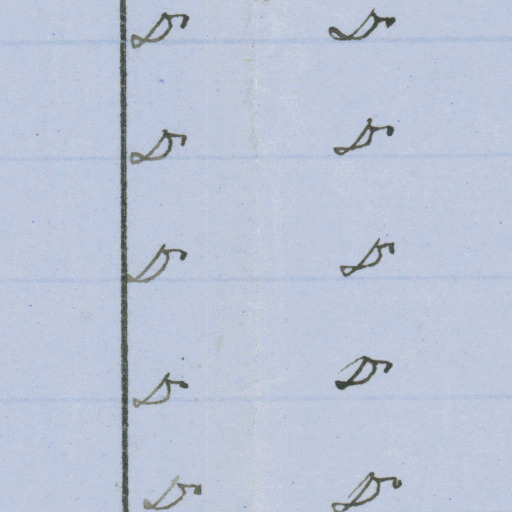 Do Do
Do Do
Do Do
Do Do
Do Do